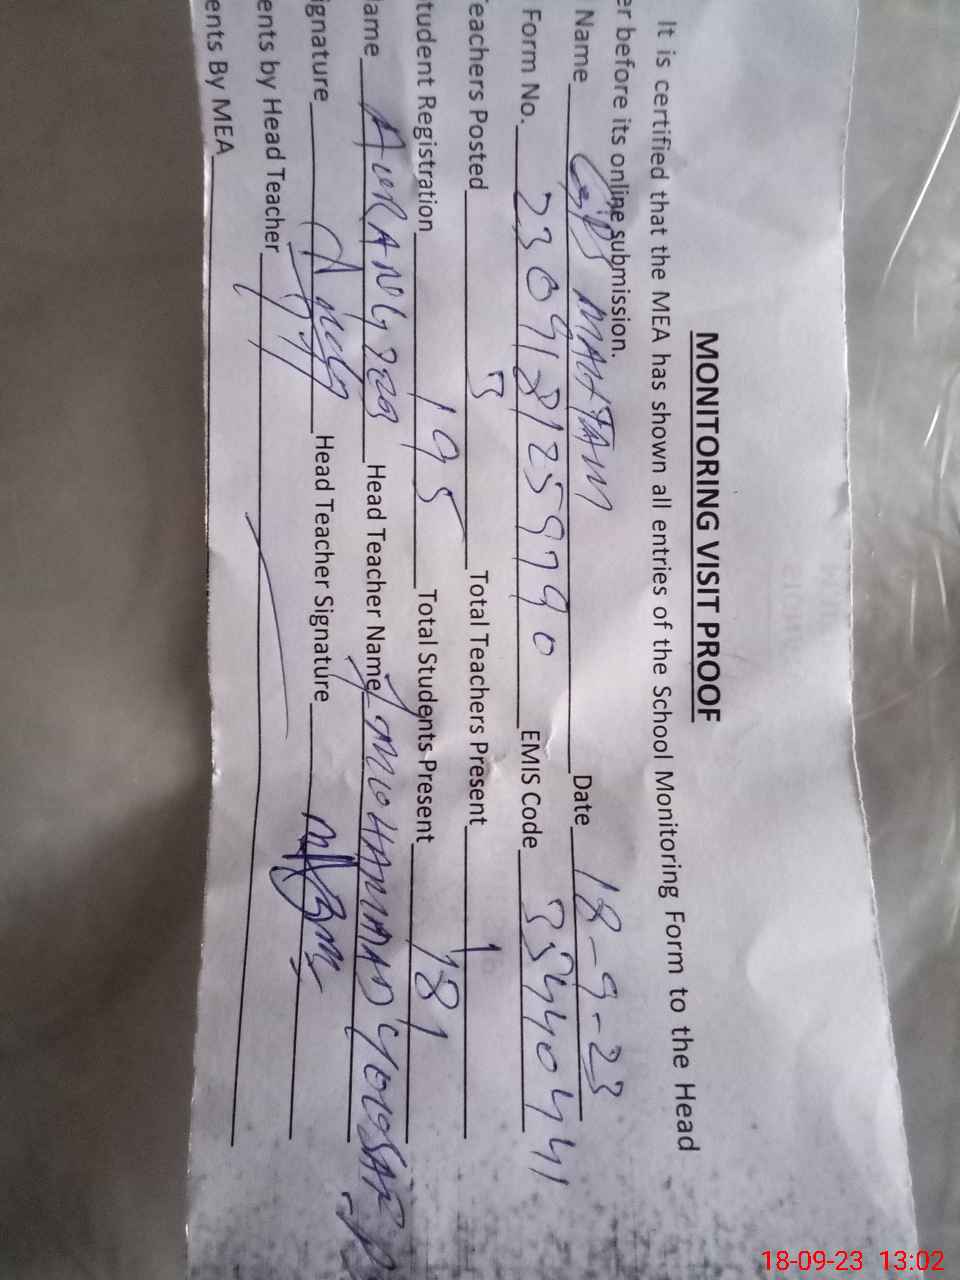 MONITORING VISIT PROOF
It is certified that the MEA has shown all entries of the School Monitoring Form to the Head
er before its online submission.
Name GPS Date 18-9-23
Form No. EMIS Code 35440441
eachers Posted Total Teachers Present
tudent Registration 195 Total Students Present 181
ame AURANGZEB Head Teacher Name MUHAMMAD YOUSAF
ignature Head Teacher Signature
ents by Head Teacher
ents By MEA
18-09-23 13:02